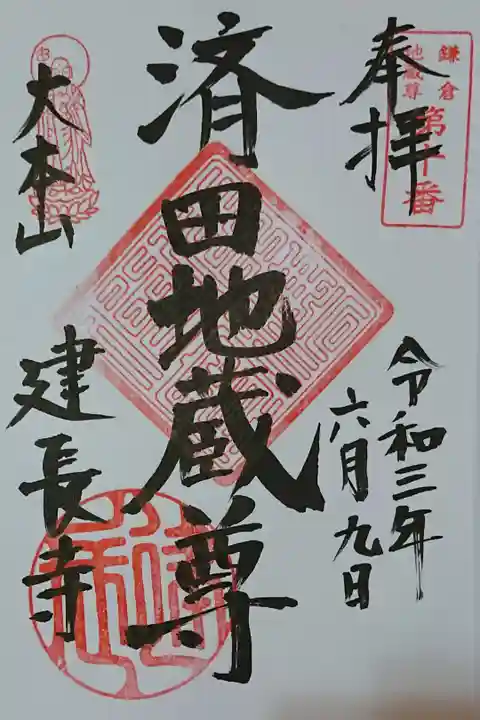 鎌倉
地蔵尊
第十番
奉拝
令和三年
六月九日
済田地蔵尊
大本山
建長寺